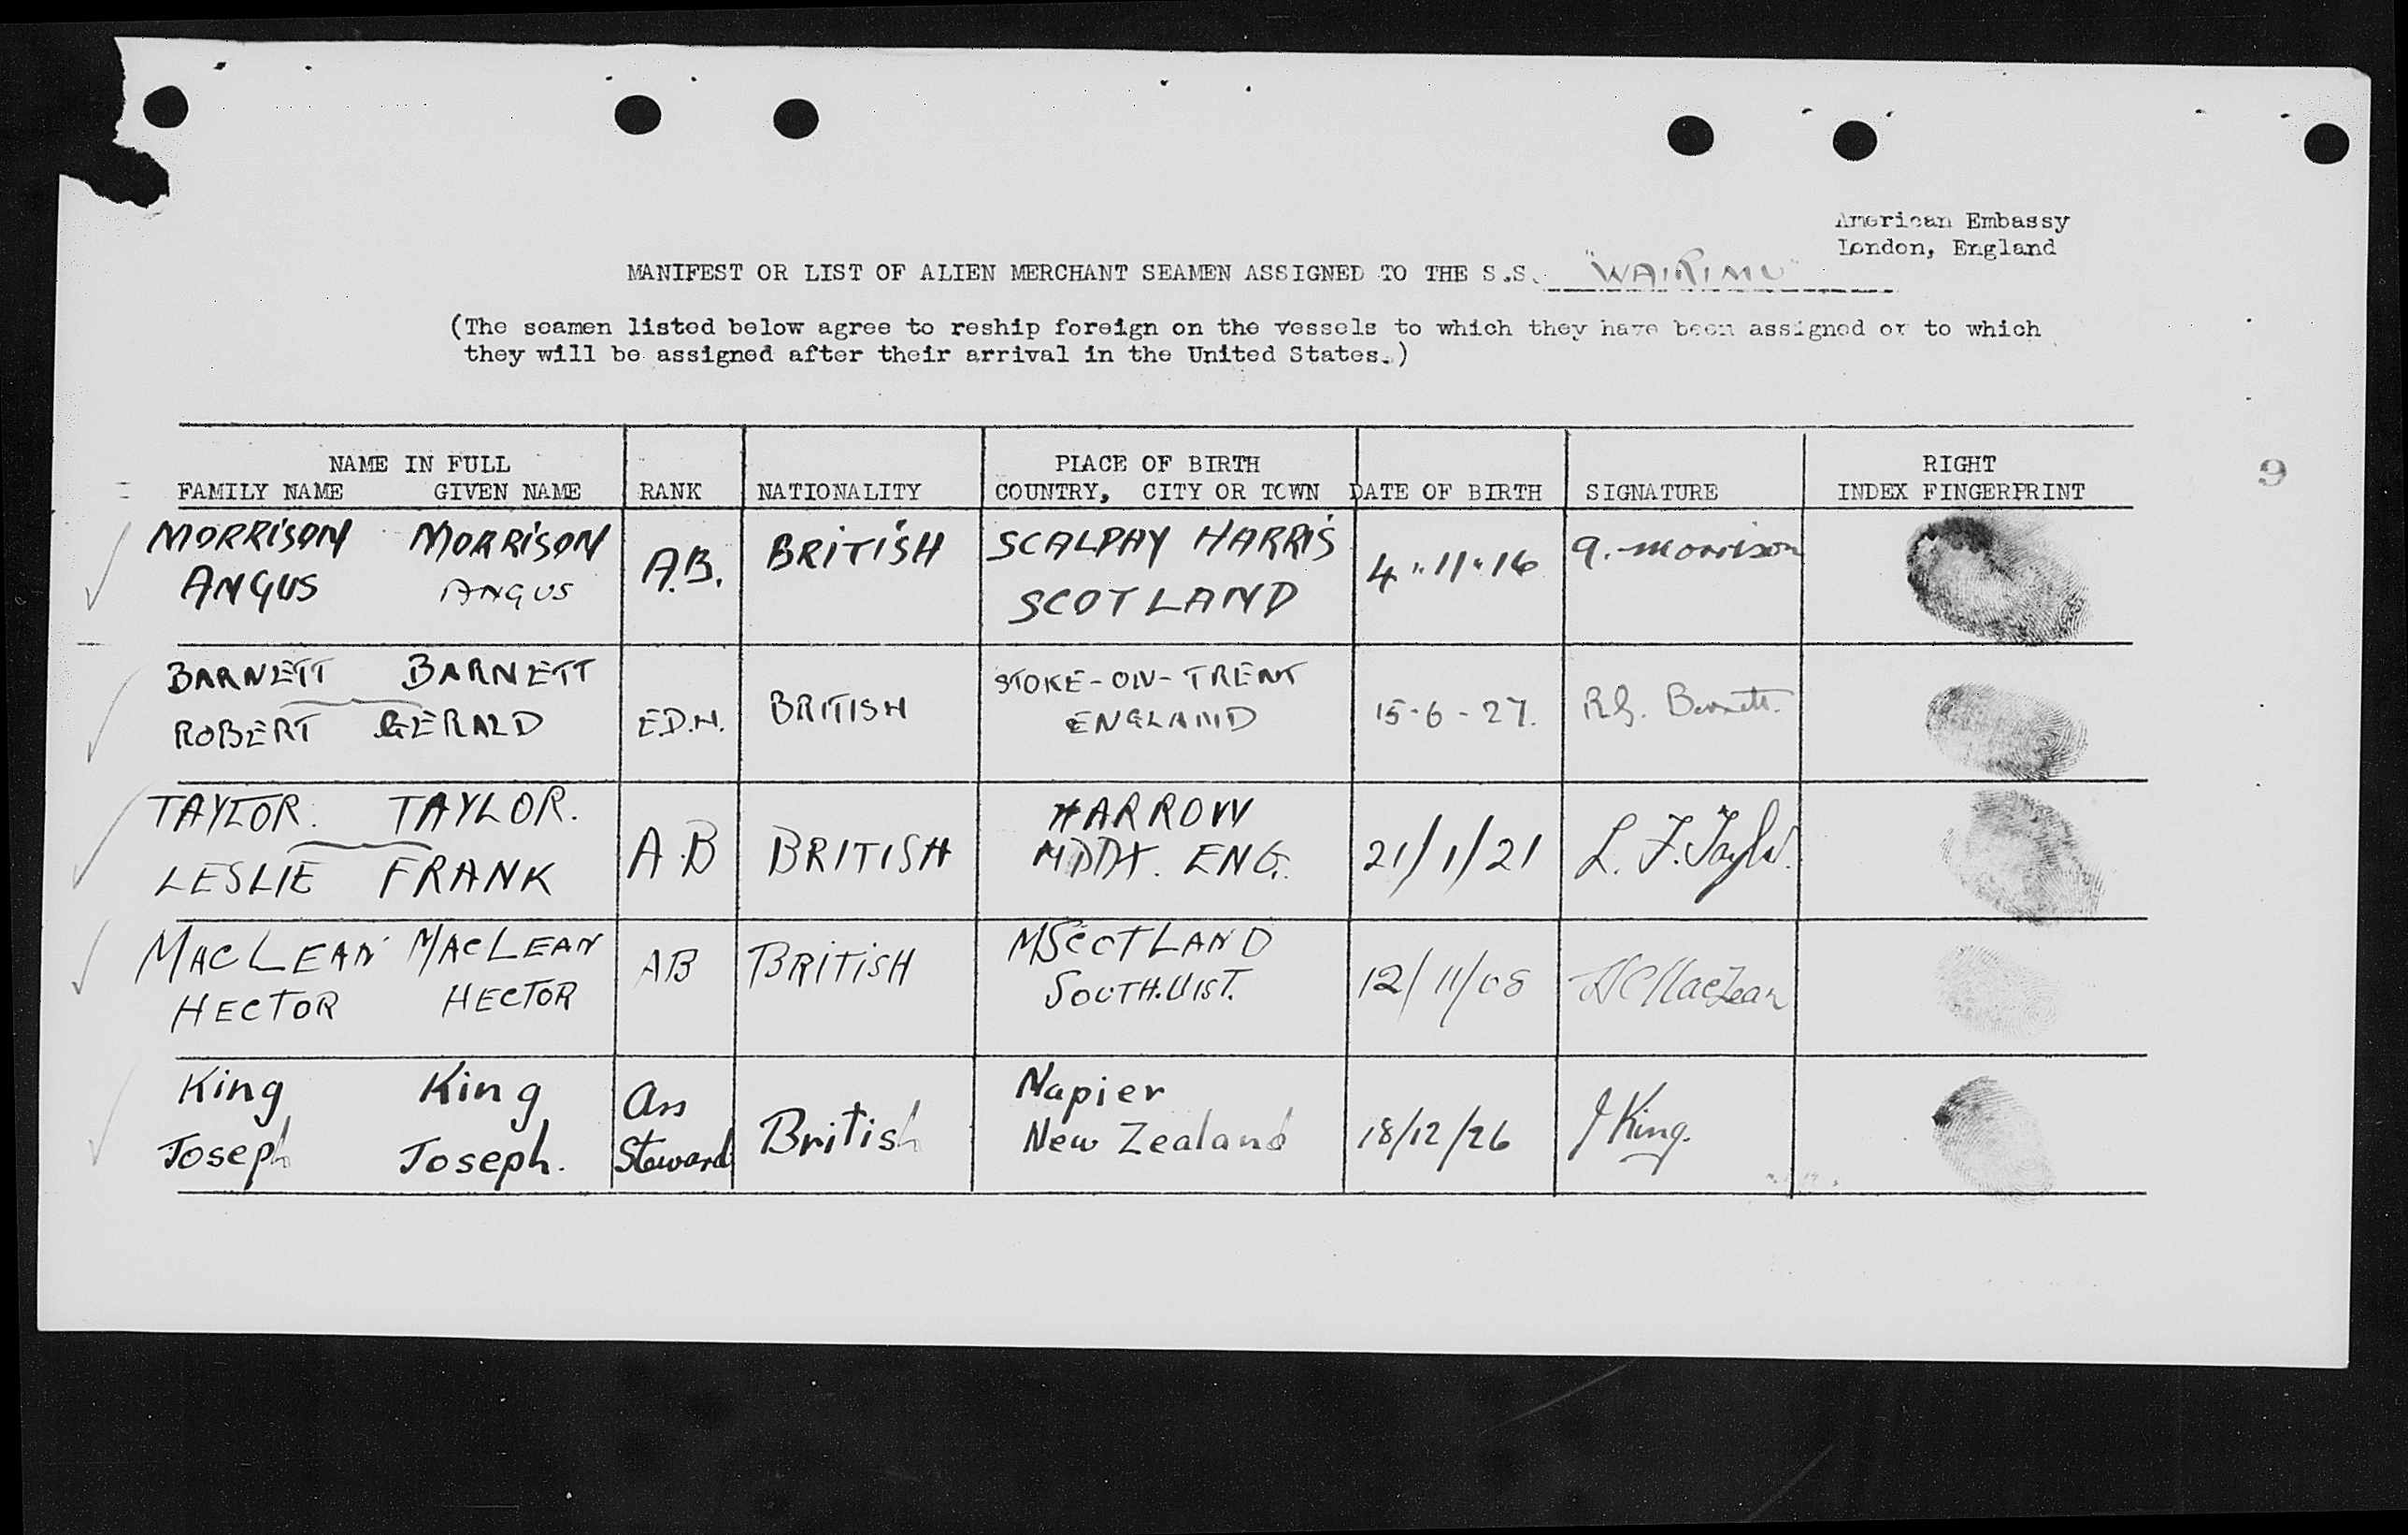 American Embassy
London, England
MANIFEST OR LIST OF ALIEN MERCHANT SEAMEN ASSIGNED TO THE S.S. "WAIRIMU"
(The seamen listed below agree to reship foreign on the vessels to which they have been assigned or to which
they will be assigned after their arrival in the United States.)
NAME IN FULL PLACE OF BIRTH RIGHT
FAMILY NAME GIVEN NAME RANK NATIONALITY COUNTRY, CITY OR TOWN DATE OF BIRTH SIGNATURE INDEX FINGERPRINT
9
MORRISON MORRISON A.B. BRITISH SCALPAY HARRIS 4"11"16 A. Morrison
ANGUS ANGUS SCOTLAND
BARNETT BARNETT STOKE-ON-TRENT
ROBERT GERALD E.D.H. BRITISH ENGLAND 15-6-27. R.G. Barnett.
TAYLOR. TAYLOR. HARROW
LESLIE FRANK A.B BRITISH MDDX. ENG. 21/1/21 L. F. Taylor.
MACLEAN MACLEAN AB BRITISH SCOTLAND 12/11/08 MacLean
HECTOR HECTOR SOUTH.UIST.
King King Ass Napier
Joseph Joseph. Steward British New Zealand 18/12/26 J King.